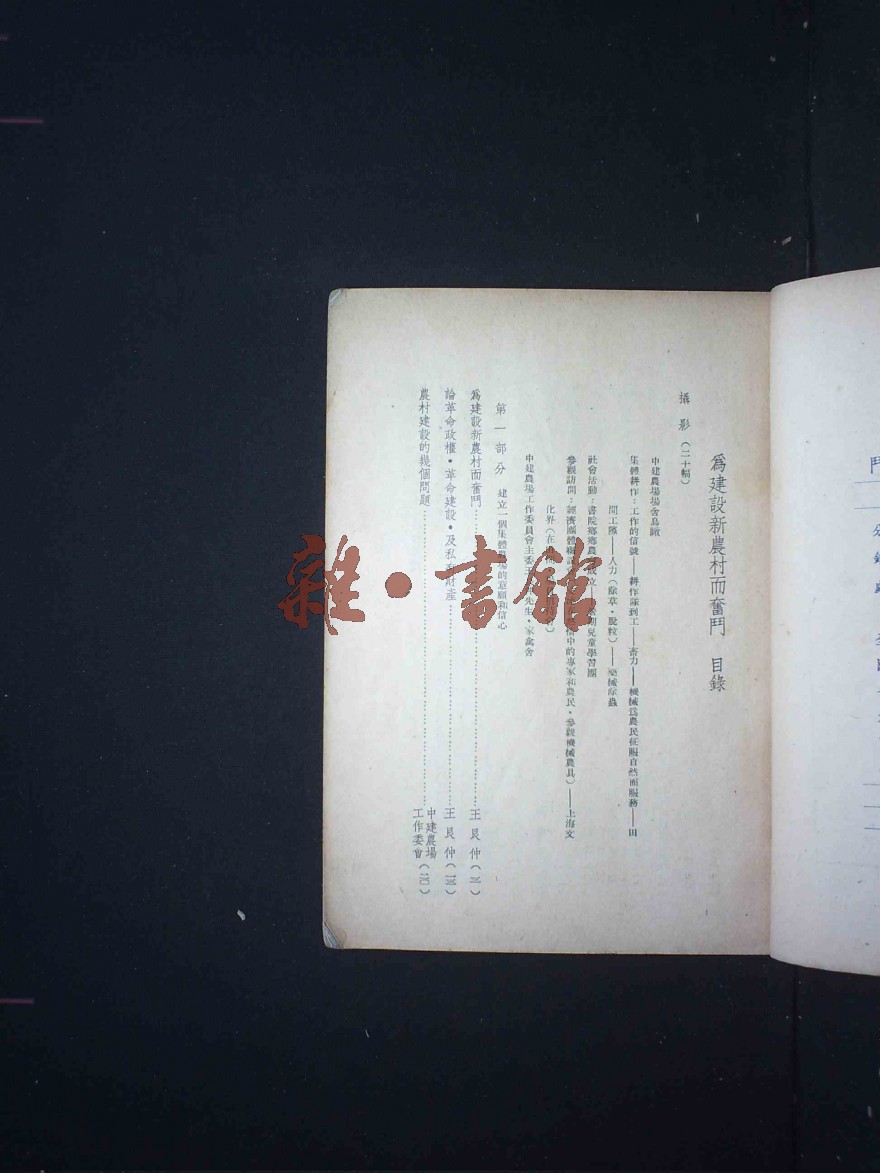 為建設新農村而奮鬥 目錄
攝影（二十幅）
中建農場場舍鳥瞰
集體耕作：工作的信號——耕作隊到工——畜力——機械為農民征服自然而服務——田
間工隊——人力（除草・脫粒）——藥械除蟲
社會活動：書院鄉農
成立
兒童學習團
參觀訪問：經濟團體
中的專家和農民・參觀機械農具）——上海文
化界（在
中建農場工作委員會主委王
先生・家禽舍
第一部分 建立一個集體農場的意願和信心
為建設新農村而奮鬥……王艮仲（一）
論革命政權・革命建設・及私有財產……王艮仲（一三）
農村建設的幾個問題……中建農場工作委會（二〇）
雜・書館
鬥